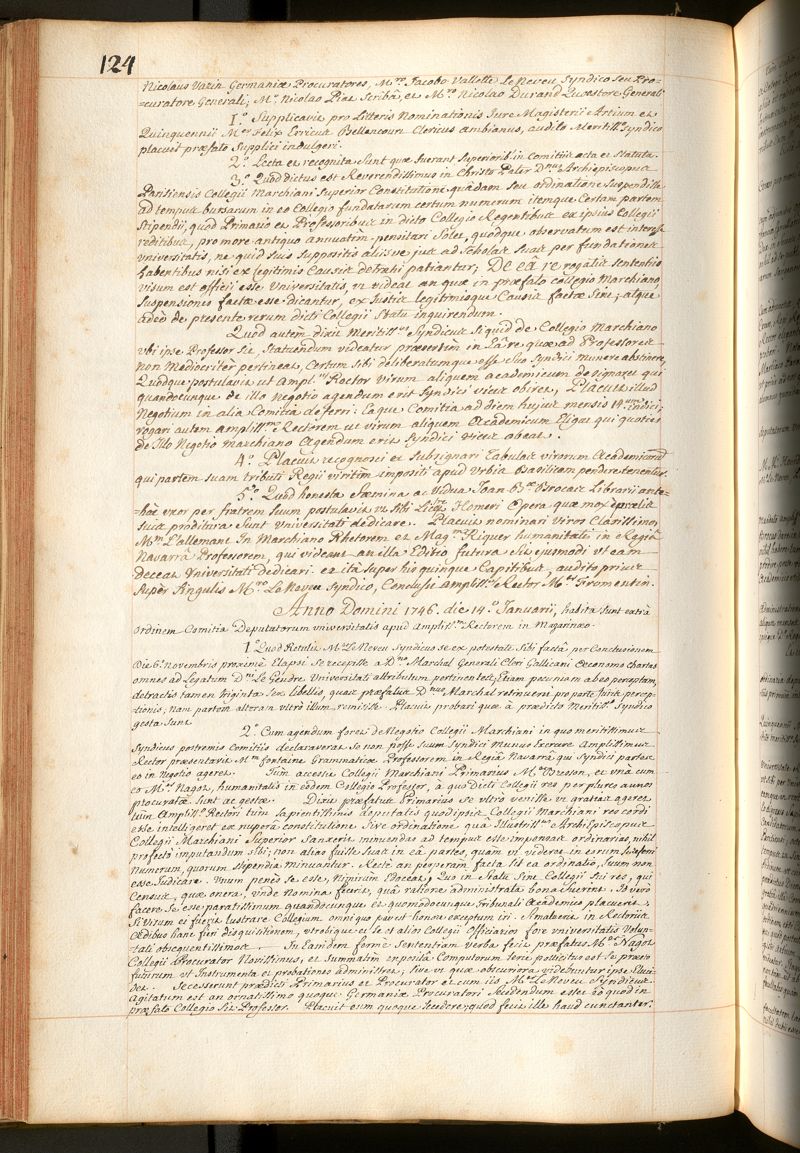 124
Nicolaus Vazin Germaniæ Procuratores, M.ro Jacobo Vallette Le Neveu Syndico seu Pro-
=curatore Generali; M.o Nicolao Piat Scribâ, et M.ro Nicolao Durand Quæstore Generali
1.o Supplicavit pro Litteris Nominationis Jure Magisterii Artium et
Quinquennii M.er Felix Erricus Bellencourt Clericus ambianus, audito Meritiss.o Syndico
placuit præfato Supplici indulgeri.
2.o Lecta et recognita Sunt quæ fuerant Superiorib. in Comitiis acta et Statuta.
3.o Quod dictus est Reverendissimus in Christo Pater D.nus Archiepiscopus
Parisiensis Collegii Marchiani Superior Constitutione quâdam Seu ordinatione Suspendisse
ad tempus bursarum in eo Collegio fundatarum certum numerum itemque Certam partem
Stipendii, quod Primario et Professoribus in dicto Collegio Regentibus ex ipsius Collegii
reditibus, pro more antiquo annuatim pensitari Solet, quodque observatum est interesse
Universitatis, ne quid suis Suppositis aliisve jus ad Scholas Suas per fundationes
habentibus nisi ex legitimis Causis detrahi patiantur; De eâ re rogatis Sententiis
visum est officii esse Universitatis, ut videat an quæ in præfato collegio Marchiano
Suspensiones factæ esse dicuntur, ex Justis legitimisque Causis factæ Sint; atque
adeò de præsente rerum dicti Collegii Statu inquirendum.
Quod autem dixit Meritiss.us Syndicus Si quid de Collegio Marchiano
ubi ipse Professor Sit, Statuendum videatur præsertim in Eâ re quæ ad Professores
non Mediocriter pertineat, Certum Sibi deliberatumque esse Suo Syndici munere abstinere,
Quodque postulavit ut Ampl.us Rector virum aliquem academicum designaret qui
quandocunque de illo Negotio agendum erit Syndici vices obiret, Placuit illud
Negotium in alia Comitia deferri: Eaque Comitia ad diem hujus mensis 14.um indici;
rogari autem ampliss.um Rectorem ut virum aliquem Academicum Eligat qui quoties
de Illo Negotio marchiano Agendum erit Syndici vices obeat.
4.o Placuit recognosci et Subsignari Tabulas virorum Academicorum
qui partem suam tributi Regii viritim impositi apud Urbis Basilicam pendere tenentur.
5.o Quod honesta Fœmina ac Vidua Joan. B.ae Brocas Librarii ante-
=hac uxor per fratrem Suum postulavit ut Sibi Liceret Homeri Opera quæ mox è prælis
Suis proditura Sunt Universitati dedicare. Placuit nominari Viros Clarissimos
M.um L'allemant In Marchiano Rhetorem et Mag.um Riquer humanitatis in Regiâ
Navarrâ Professorem, qui videant an illa Editio futura Sit ejusmodi ut eam
Deceat Universitati dedicari. et ità Super his quinque Capitibus, audito prius
Super Singulis M.ro Le Neveu Syndico, Conclusit Ampliss.us Rector M.er Fromentin.
Anno Domini 1746. die 14.a Januarii, habita Sunt extrà
ordinem Comitia Deputatorum universitatis apud Ampliss.um Rectorem in Mazarinæo.
1.o Quod Retulit M.er Le Neveu Syndicus Se ex potestate Sibi factâ per Conclusionem
Die 6.a Novembris proximè Elapsi Se recepisse a D.no Marchal Generali Cleri Gallicani Œconomo chartas
omnes ad Legatum D.ni Le Gendre Universitati attributum pertinentes, Etiam pecuniam ab eo perceptam,
detractis tamen triginta Sex libellis, quas præfatus D.nus Marchal retinuerit pro parte juris percep-
tionis; Nam partem alteram ultrò illum remisisse. Placuit probari quæ à prædicto Meritiss.o Syndico
gesta Sunt.
2.o Cum agendum foret de Negotio Collegii Marchiani in quo meritissimus
Syndicus postremis Comitiis declaraverat Se non posse Suum Syndici Munus Exercere Amplissimus
Rector præsentavit M.um fontaine Grammaticæ Professorem in Regiâ Navarrâ qui Syndici partes
eo in Negotio ageret. Tùm accessit Collegii Marchiani Primarius M.er Besson, et unà cum
eo M.er Nagot, humanitatis in eodem Collegio Professor, à quo Dicti Collegii res per plures annos
procuratæ Sunt ac gestæ. Dixit præfatus Primarius Se ultrò venisse ut gratias ageret
tùm Ampliss.o Rectori tùm Sapientissimis deputatis quod ipsis Collegii Marchiani res cordi
esse intelligeret ex nuperâ constitutione Sive ordinatione quâ Illustriss.us Archiepiscopus
Collegii Marchiani Superior Sanxerit minuendas ad tempus esse impensas ordinarias, nihil
profectò imputandum Sibi; non alias fuisse Suas in eâ partes, quàm ut videret in eorum Se censeri
numerum, quorum Stipendia minuantur. Rectè an perperam facta Sit ea ordinatio, Suum non
esse Judicare. Unum penès Se esse, Nimirum Edoceat, Quo in Statu Sint Collegii Sui res, qui
Census, quæ onera, unde Nomina fuerit, quâ ratione administrata bona fuerint. Id verò
facere Se esse paratissimum quandocunque et quomodocunque Tribunali Academico placuerit.
Si Visum ei fuerit lustrare Collegium omni quo par est honore exceptum iri. Si maluerit in Rectoriis
Ædibus hanc fieri disquisitionem, utrobique et Se et alios Collegii Officiarios fore universitatis Volun-
tati obsequentissimos. In Eamdem fermè Sententiam verba fecit præfatus M.er Nagot
Collegii Procurator Novissimus, et Summatim expositâ Computorum Serie pollicitus est Se præstò
futurum ut Instrumenta et probationes administret, Sive ut quæ obscuriora videbuntur ipse Eluci-
det. Secesserunt prædicti Primarius et Procurator et cum iis M.er Le Neveu Syndicus.
Agitatum est an ornatissimo quoque Germaniæ Procuratori Secedendum esset eò quod in
præfato Collegio Sit Professor. Placuit eum quoque Secedere; quod fecit ille haud cunctanter.